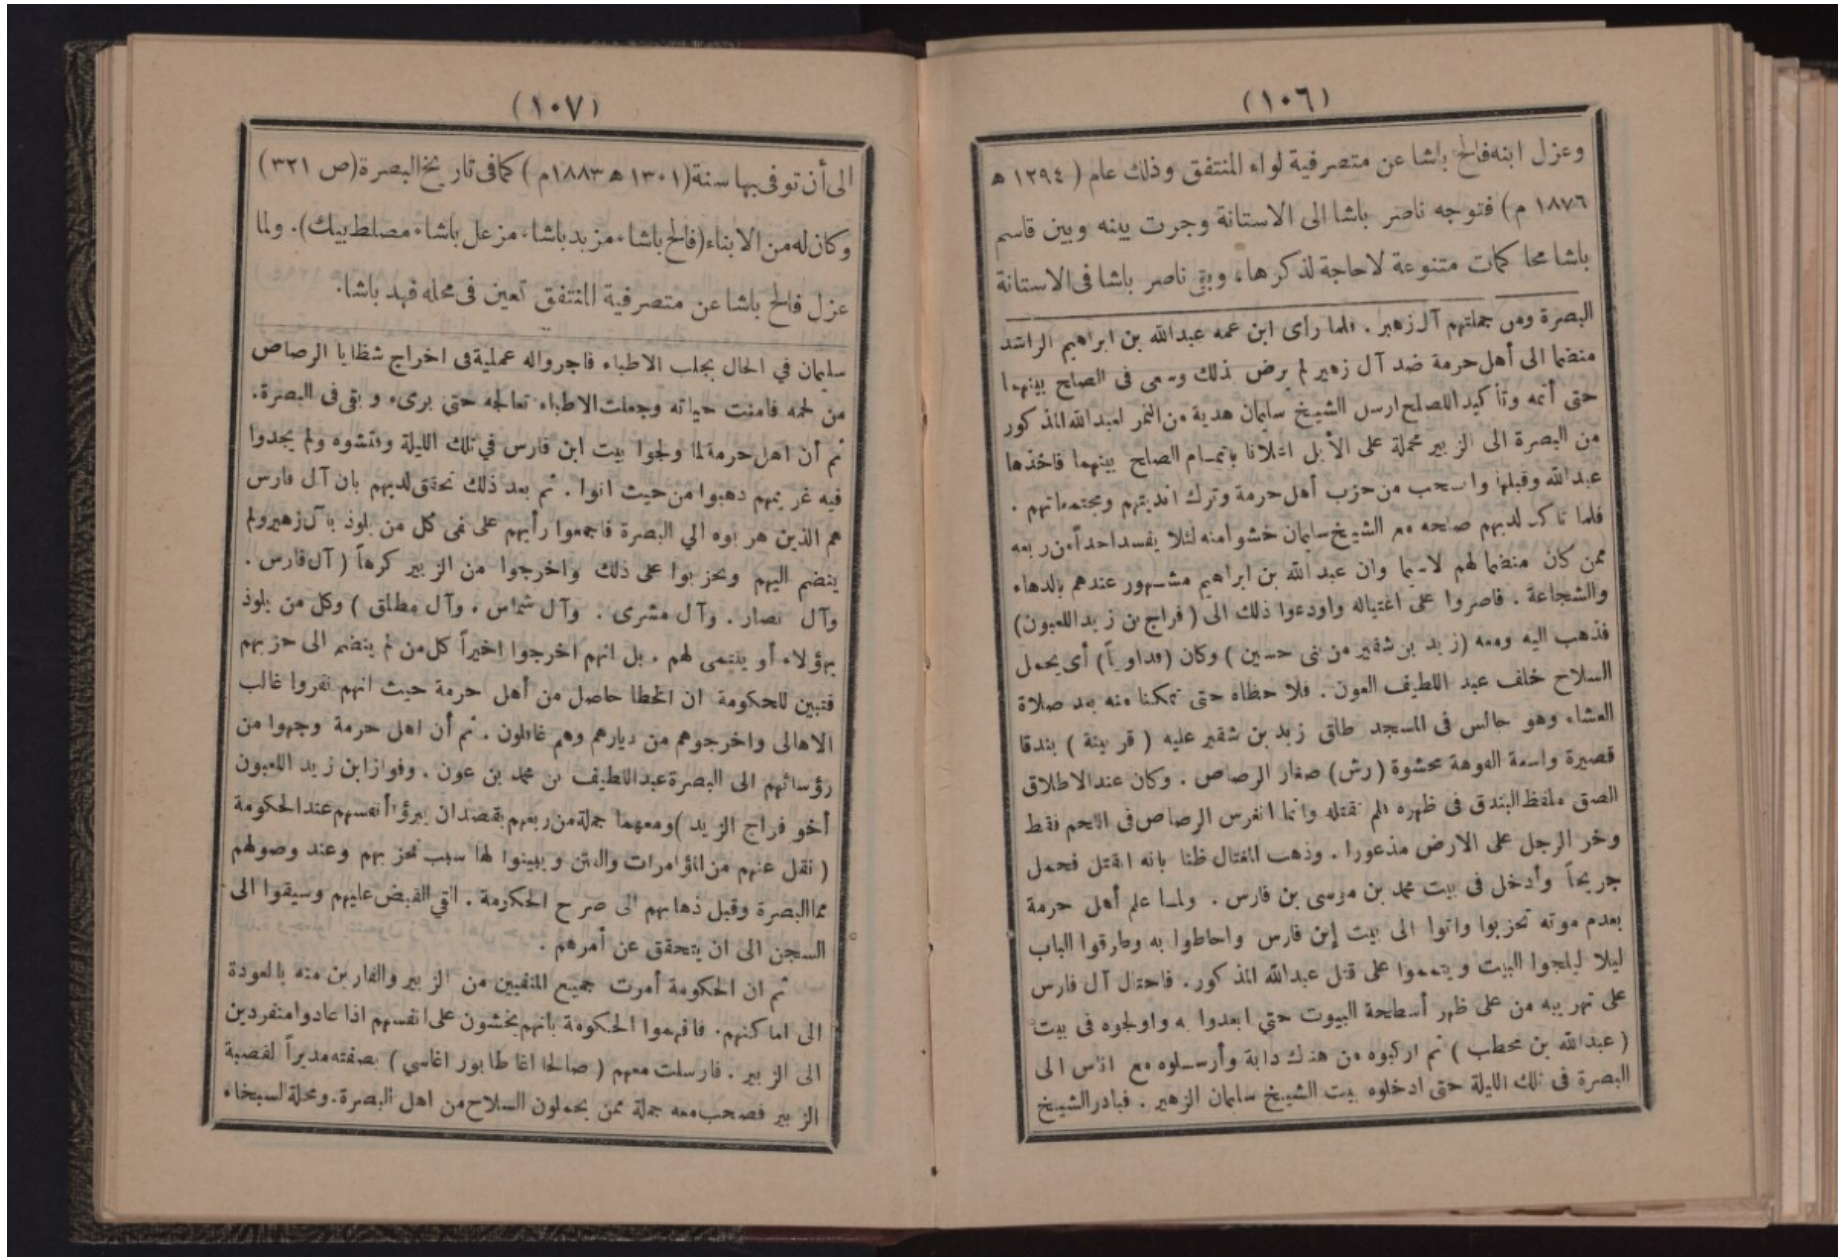 (١٠٦)
وعزل ابنه فالح باشا عن متصرفية لواء المنتفق وذلك عام ( ١٢٩٤ ه
١٨٧٦ م) فتوجه ناصر باشا الى الاستانة وجرت بينه وبين قاسم
باشا محا كمات متنوعة لا حاجة لذكرها، وبقى ناصر باشا فى الاستانة
البصرة ومن جملتهم آل زهير . فلما رأى ابن عمه عبدالله بن ابراهيم الراشد
منضما الى أهل حرمة ضد آل زهير لم يرض بذلك وسعى فى الصلح بينهما
حتى أتمه وتأكيدا للصلح ارسل الشيخ سليمان هدية من التمر لعبدالله المذكور
من البصرة الى الزبير محملة على الأبل اعلانا باتمام الصلح بينهما فاخذها
عبدالله وقبلها وانسحب من حزب أهل حرمة وترك انديتهم ومجتمعاتهم .
فلما تاكد لديهم صلحه مع الشيخ سليمان خشوا منه لئلا يفسد احداً من ربعه
ممن كان منضما لهم لاسيما وان عبد الله بن ابراهيم مشهور عندهم بالدهاء
والشجاعة . فاصروا على اغتياله واودعوا ذلك الى ( فراج بن زيد اللعبون)
فذهب اليه ومعه (زيد بن شقير من بنى حسين ) وكان (فداوياً) أى يحمل
السلاح خلف عبد اللطيف العون . فلاحظاه حتى تمكنا منه بعد صلاة
العشاء وهو جالس فى المسجد طلق زيد بن شقير عليه ( قربينة ) بندقا
قصيرة واسعة الفوهة محشوة (رش) صغار الرصاص . وكان عند الاطلاق
الصق ملفظ البندق فى ظهره فلم تقتله وانما انغرس الرصاص فى اللحم فقط
وخر الرجل على الارض مذعورا . وذهب المغتال ظنا بانه اقتتل فحمل
جريحاً وأدخل فى بيت محمد بن موسى بن فارس . ولما علم أهل حرمة
بعدم موته تحزبوا واتوا الى بيت إبن فارس واحاطوا به وطرقوا الباب
ليلا ليلجوا البيت ويتمموا على قتل عبدالله المذكور . فاحتال آل فارس
على تهريبه من على ظهر أسطحة البيوت حتي ابعدوا به واولجوه فى بيت
( عبدالله بن محطب ) ثم اركبوه من هناك دابة وأرسلوه مع اناس الى
البصرة فى تلك الليلة حتى ادخلوه بيت الشيخ سليمان الزهير . فبادر الشيخ
(١٠٧)
الى أن توفى بها سنة (١٣٠١ ه ١٨٨٣م ) كما فى تاريخ البصرة (ص ٣٢١)
وكان له من الابناء (فالح باشا، مزيد باشا، مزعل باشا، مصلط بيك). ولما
عزل فالح باشا عن متصرفية المنتفق تعين فى محله فهد باشا.
سليمان في الحال بجلب الاطباء فاجروا له عملية فى اخراج شظايا الرصاص
من لحمه فامنت حياته وجعلت الاطباء تعالجه حتى برىء وبقى فى البصرة.
ثم أن اهل حرمة لما ولجوا بيت ابن فارس في تلك الليلة وفتشوه ولم يجدوا
فيه غريمهم ذهبوا من حيث اتوا . ثم بعد ذلك تحقق لديهم بان آل فارس
هم الذين هربوه الي البصرة فاجمعوا رأيهم على نفى كل من يلوذ بآل زهير ولم
ينضم اليهم وتحزبوا على ذلك واخرجوا من الزبير كرهاً ( آل فارس .
وآل نصار . وآل مشرى . وآل شماس . وآل مطلق ) وكل من يلوذ
بهؤلاء أو ينتمى لهم . بل انهم اخرجوا اخيراً كل من لم ينضم الى حزبهم
فتبين للحكومة ان الخطا حاصل من أهل حرمة حيث انهم نفروا غالب
الاهالى واخرجوهم من ديارهم وهم غافلون . ثم أن اهل حرمة وجهوا من
رؤسائهم الى البصرة عبداللطيف بن محمد بن عون . وفواز ابن زيد اللعبون
أخو فراج الزيد ) ومعهما جملة من ربعهم بقصد ان يبرؤا أنفسهم عند الحكومة
( نقل عنهم من المؤامرات والفتن ويبينوا لها سبب تحزبهم وعند وصولهم
مما البصرة وقبل ذهابهم الى صرح الحكومة . القي القبض عليهم وسيقوا الى
السجن الى ان يتحقق عن أمرهم .
ثم ان الحكومة أمرت جميع المنفيين من الزبير والفارين منه بالعودة
الى اما كنهم. فافهموا الحكومة بانهم يخشون على انفسهم اذا عادوا منفردين
الى الزبير . فارسلت معهم ( صالحا اغا طابور اغاسي ) بصفته مديراً لقصبة
الزبير فصحب معه جملة ممن يحملون السلاح من اهل البصرة. ومحلة السبخاء